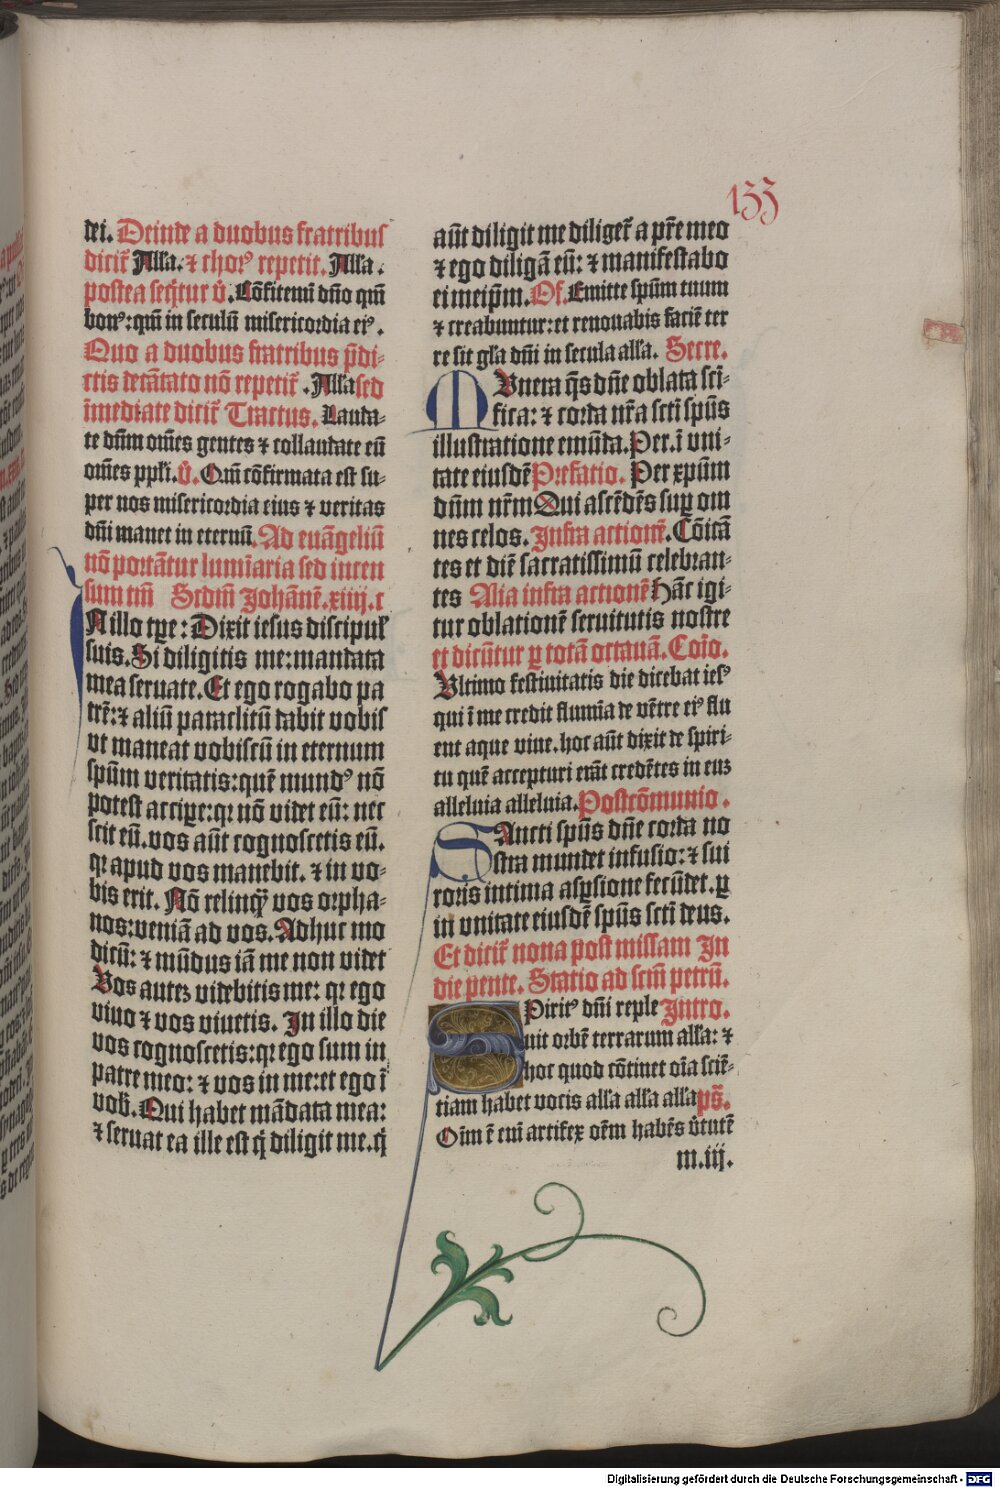 133
dei. Deinde a duobus fratribus
dicit̄ Alľa. ⁊ chorꝰ repetit. Alľa.
postea seq̄tur v̓. Cōfitemī dño qm̄
bonꝰ: qm̄ in seculū misericordia eiꝰ.
Quo a duobus fratribus p̄di-
ctis decātato nō repetit̄. Alľa sed
īmediate dicit̄ Tractus. Lauda-
te dñm om̄es gentes ⁊ collaudate eū
om̄es ppľi. v̓. Qm̄ cōfirmata est su-
per nos misericordia eius ⁊ veritas
dñi manet in eternū. Ad euāgeliū
nō portātur lumīaria sed incen
sum tm̄ Scd̄m Johānē. xiiij. c
N illo tꝑe: Dixit iesus discipuľ
suis. Si diligitis me: mandata
mea seruate. Et ego rogabo pa
trē: ⁊ aliū paraclitū dabit vobis
vt maneat vobiscū in eternum
spm̄ veritatis: quē mundꝰ nō
potest acciꝑe: qꝛ nō videt eū: nec
scit eū. vos aūt cognoscetis eū.
qꝛ apud vos manebit. ⁊ in vo-
bis erit. Nō relinqȝ vos orpha-
nos: veniā ad vos. Adhuc mo
dicū: ⁊ mūdus iā me non videt
Vos auteȝ videbitis me: qꝛ ego
viuo ⁊ vos viuetis. In illo die
vos cognoscetis: qꝛ ego sum in
patre meo: ⁊ vos in me: et ego ī
vob̓. Qui habet mādata mea:
⁊ seruat ea ille est q̇ diligit me. q̇
aūt diligit me diliget̄ a pr̄e meo
⁊ ego diligā eū: ⁊ manifestabo
ei meip̄m. Of. Emitte spm̄ tuum
⁊ creabuntur: et renouabis faciē ter
re sit gľa dñi in secula alľa. Secre.
MVnera q̄s dñe oblata scī-
fica: ⁊ corda nr̄a sctī spūs
illustratione emūda. Per. ī vni-
tate eiusdē Prefatio. Per xp̄um
dñm nr̄m Qui ascēdēs suꝑ om
nes celos. Infra actionē. Cōicā
tes et diē sacratissimū celebran-
tes Alia infra actionē Hāc igi-
tur oblationē seruitutis nostre
et dicūtur ꝑ totā octauā. Coīo.
Vltimo festiuitatis die dicebat iesꝰ
qui ī me credit flumīa de vētre eiꝰ flu
ent aque viue. hoc aūt dixit de spiri-
tu quē accepturi erāt credētes in euȝ
alleluia alleluia. Postcōmunio.
SAncti spūs dñe corda no
stra mundet infusio: ⁊ sui
roris intima asꝑsione fecūdet. ꝑ
in vnitate eiusdē spūs sctī deus.
Et dicit̄ nona post missam In
die pente. Statio ad scm̄ petrū.
SPiritꝰ dñi reple Intro.
uit orbē terrarum alľa: ⁊
hoc quod cōtinet oīa sciē-
tiam habet vocis alľa alľa alľa ps̄.
Oīm ē eni artifex oēm habēs v̓tutē
m.iij.
Digitalisierung gefördert durch die Deutsche Forschungsgemeinschaft - DFG